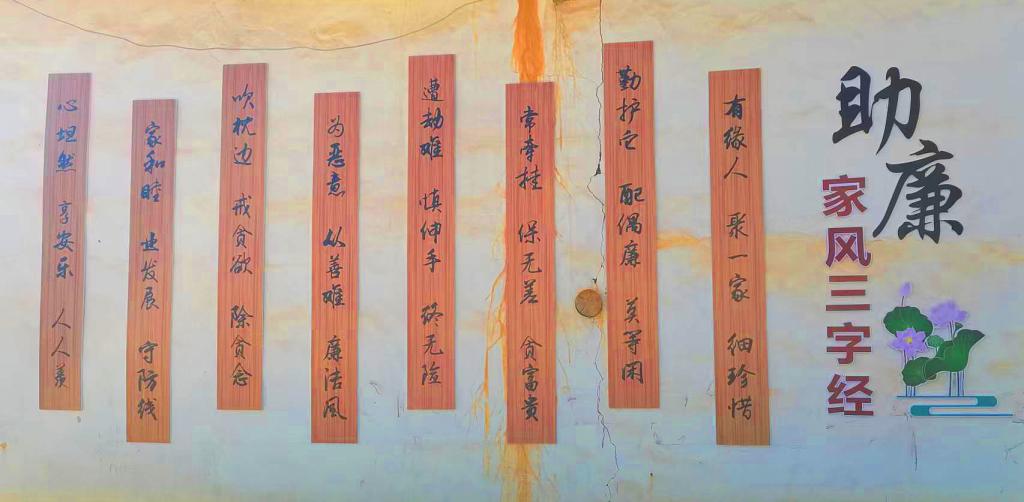 助廉
家风三字经
有缘人 聚一家 细珍惜
勤护它 配偶廉 莫等闲
常牵挂 保无差 贪富贵
遭劫难 慎伸手 终无险
为恶意 从善难 廉洁风
吹枕边 戒贪欲 除贪念
家和睦 业发展 守防线
心坦然 享安乐 人人羡